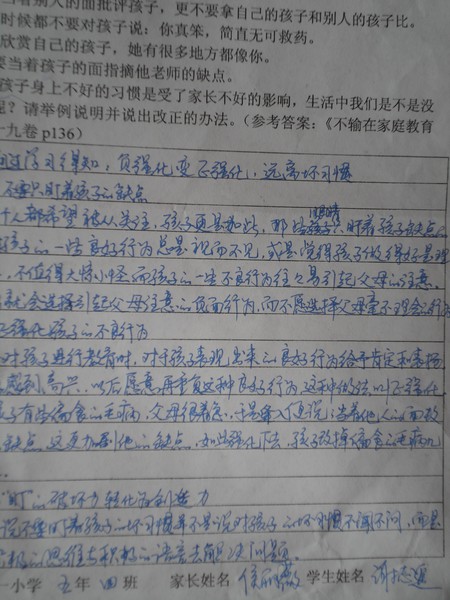 当着别人的面批评孩子，更不要拿自己的孩子和别人的孩子比。
时候都不要对孩子说：你真笨，简直无可救药。
欣赏自己的孩子，她有很多地方都像你。
要当着孩子的面指摘他老师的缺点。
孩子身上不好的习惯是受了家长不好的影响，生活中我们是不是没
呢？请举例说明并说出改正的办法。（参考答案：《不输在家庭教育
十九卷 p136）
习得知，负强化变正强化，远离坏习惯
不要只盯着孩子的缺点
人都希望被人关注，孩子更是如此，那些眼睛只盯着孩子缺点的
孩子的一些良好行为总是视而不见，或是觉得孩子做得好是理
，不值得大惊小怪，而孩子的一些不良行为往往易引起父母的注意。
就会选择引起父母注意的负面行为，而不愿选择父母毫不理会的行为
强化孩子的不良行为
对孩子进行教育时，对于孩子表现出来的良好行为给予肯定和表扬
感到高兴，以后愿意再重复这种良好行为，这种做法叫正强化
子有些偏食的毛病，父母很着急，于是
缺点，这更加剧他的缺点，如此强化下去，孩子改掉偏食的毛病
"盯"的破坏力转化为创造力
说不要盯着孩子的坏习惯并不是说对孩子的坏习惯不闻不问，而是
极的思维与积极的语言去解决问题。
一小学 五年 四 班 家长姓名 学生姓名